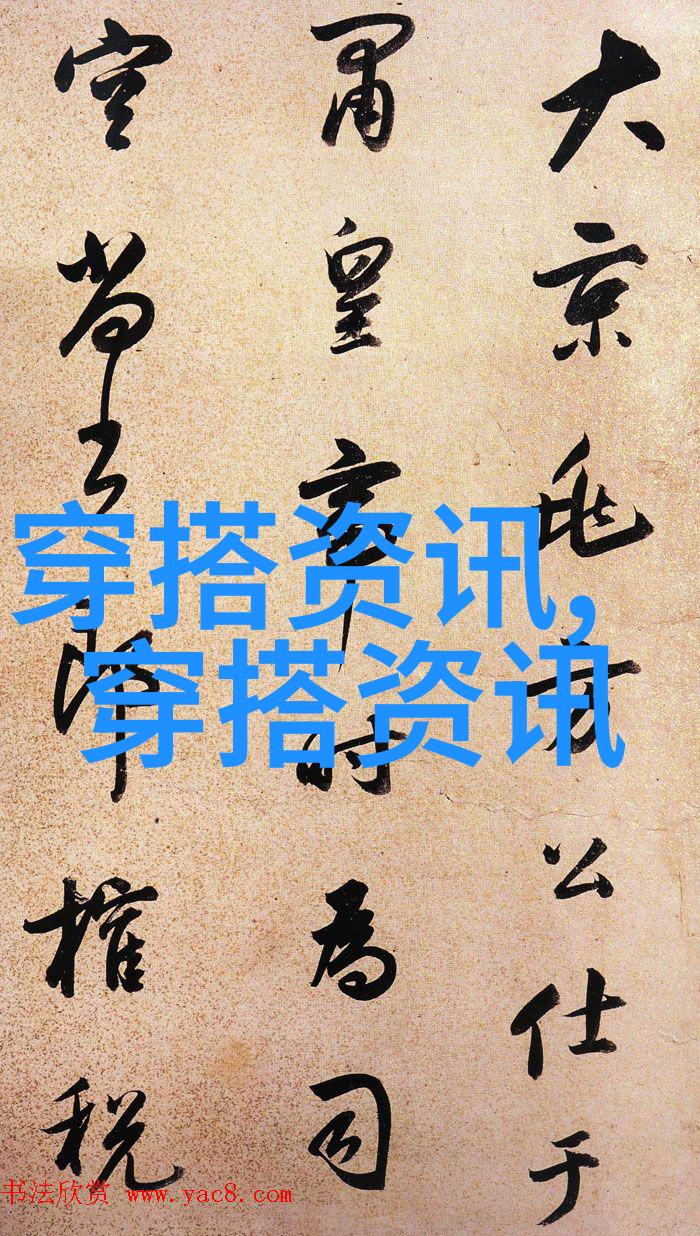 大京兆方公仕于
肅皇帝時為司
空尚書郎榷税
穿搭资讯,
穿搭资讯
书法欣赏 www.yac8.com